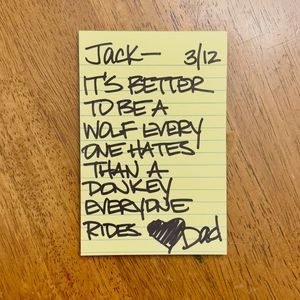 Jack— 3/12
IT'S BETTER
TO BE A
WOLF EVERY
ONE HATES
THAN A
DONKEY
EVERYONE
RIDES Dad